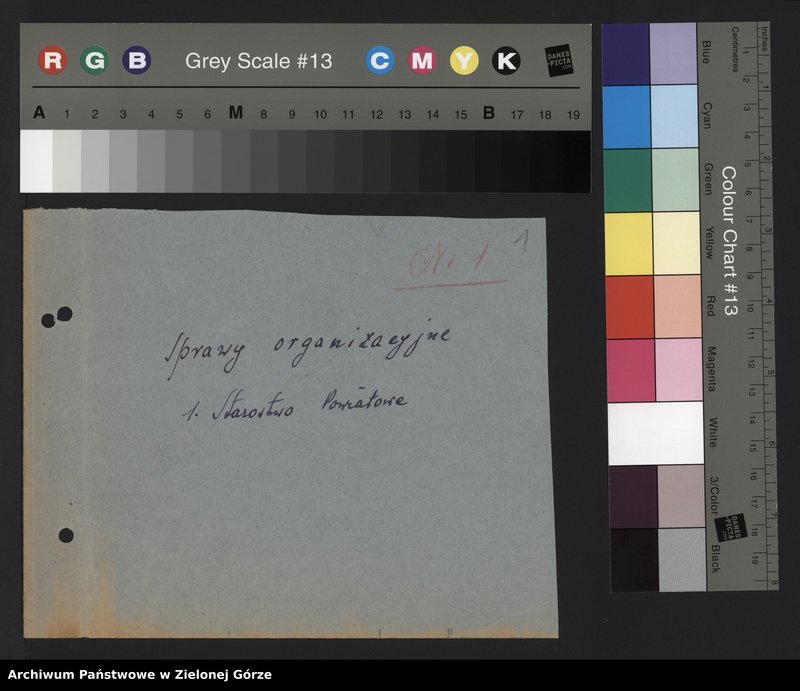 R G B Grey Scale #13 C M Y K DANES-PICTA.COM
A 1 2 3 4 5 6 M 8 9 10 11 12 13 14 15 B 17 18 19
Nr 1
1
Sprawy organizacyjne
1. Starostwo Powiatowe
Colour Chart #13
Blue
Cyan
Green
Yellow
Red
Magenta
White
3/Color
Black
Centimetres 1 2 3 4 5 6 7 8 9 10 11 12 13 14 15 16 17 18 19
Inches 1 2 3 4 5 6 7 8
DANES-PICTA.COM
Archiwum Państwowe w Zielonej Górze